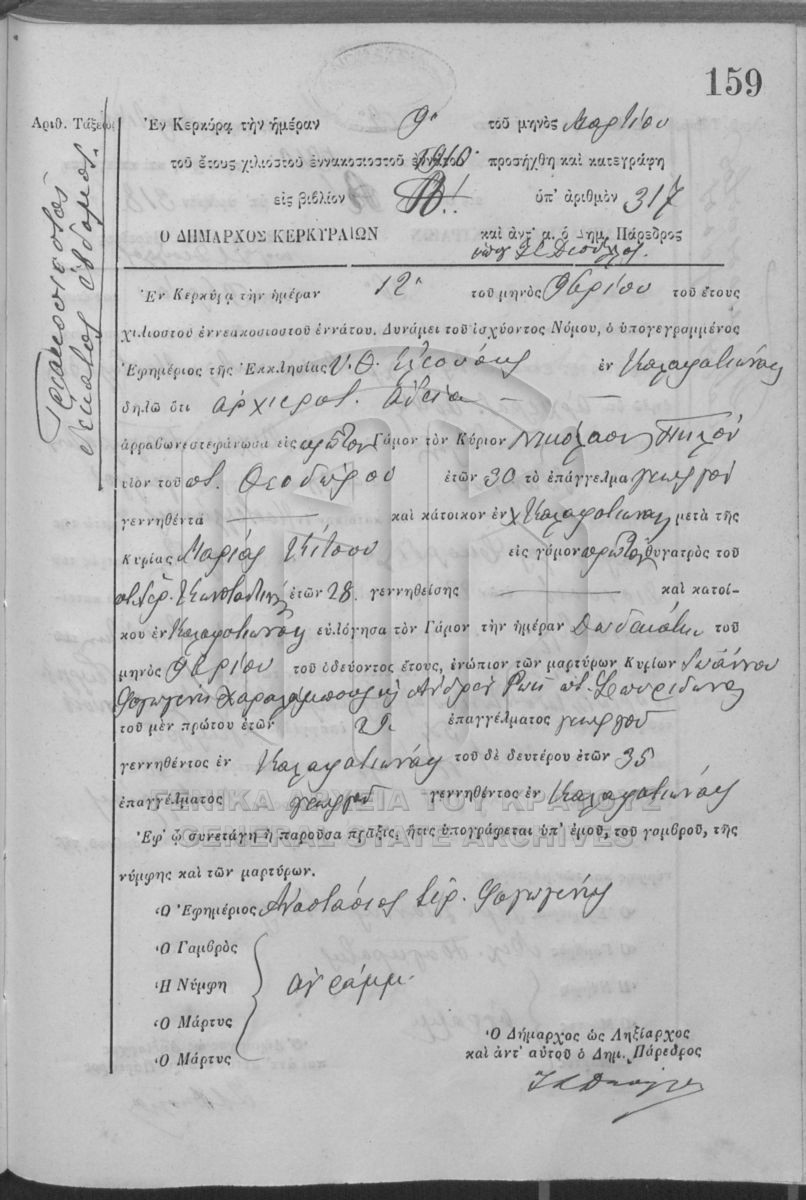 159
Αριθ. Τάξεως
Τριακοσιοστὸς
δέκατος ἕβδομος.
Ἐν Κερκύρᾳ τὴν ἡμέραν 9η τοῦ μηνὸς Μαρτίου
τοῦ ἔτους χιλιοστοῦ ἐννακοσιοστοῦ 1910 προσήχθη καὶ κατεγράφη
εἰς βιβλίον ὑπ' ἀριθμὸν 317
Ο ΔΗΜΑΡΧΟΣ ΚΕΡΚΥΡΑΙΩΝ καὶ ἀντ' α. ὁ Δημ. Πάρεδρος
Ἐν Κερκύρᾳ τὴν ἡμέραν 12η τοῦ μηνὸς 9βρίου τοῦ ἔτους
χιλιοστοῦ ἐννεακοσιοστοῦ ἐννάτου. Δυνάμει τοῦ ἰσχύοντος Νόμου, ὁ ὑπογεγραμμένος
Ἐφημέριος τῆς Ἐκκλησίας Υ. Θ. Ἐλεούσης ἐν Καλαφατιώνας
δηλῶ ὅτι ἀρχιερατ. ἀδείᾳ
ἀρραβωνεστεφάνωσα εἰς πρῶτον Γάμον τὸν Κύριον Νικόλαον Πηλὸν
υἱὸν τοῦ ποτ. Θεοδώρου ἐτῶν 30 τὸ ἐπάγγελμα γεωργὸν
γεννηθέντα — καὶ κάτοικον ἐν Καλαφατιώνας μετὰ τῆς
Κυρίας Μαρίας Κίτσου εἰς γάμον πρῶτον θυγατρὸς τοῦ
ποτ. ἱερ. Κωνσταντίνου ἐτῶν 28. γεννηθείσης — καὶ κατοί-
κου ἐν Καλαφατιώνας εὐλόγησα τὸν Γάμον τὴν ἡμέραν Δωδεκάτη τοῦ
μηνὸς 9βρίου τοῦ ὁδεύοντος ἔτους, ἐνώπιον τῶν μαρτύρων Κυρίων Ἰωάννου
Φαγωγένη Χαραλάμπους καὶ Ἀνδρέα ποτ. Σπυρίδωνος
τοῦ μὲν πρώτου ἐτῶν 29. ἐπαγγέλματος γεωργοῦ
γεννηθέντος ἐν Καλαφατιώνας τοῦ δὲ δευτέρου ἐτῶν 35
ἐπαγγέλματος γεωργοῦ γεννηθέντος ἐν Καλαφατιώνας
ΓΕΝΙΚΑ ΑΡΧΕΙΑ ΤΟΥ ΚΡΑΤΟΥΣ
GENERAL STATE ARCHIVES
Ἐφ' ᾧ συνετάγη ἡ παροῦσα πρᾶξις, ἥτις ὑπογράφεται ὑπ' ἐμοῦ, τοῦ γαμβροῦ, τῆς
νύμφης καὶ τῶν μαρτύρων.
Ὁ Ἐφημέριος Ἀναστάσιος ἱερ. Φαγωγένης
Ὁ Γαμβρὸς
Ἡ Νύμφη ἀγράμμ.
Ὁ Μάρτυς
Ὁ Μάρτυς
Ὁ Δήμαρχος ὡς Ληξίαρχος
καὶ ἀντ' αὐτοῦ ὁ Δημ. Πάρεδρος